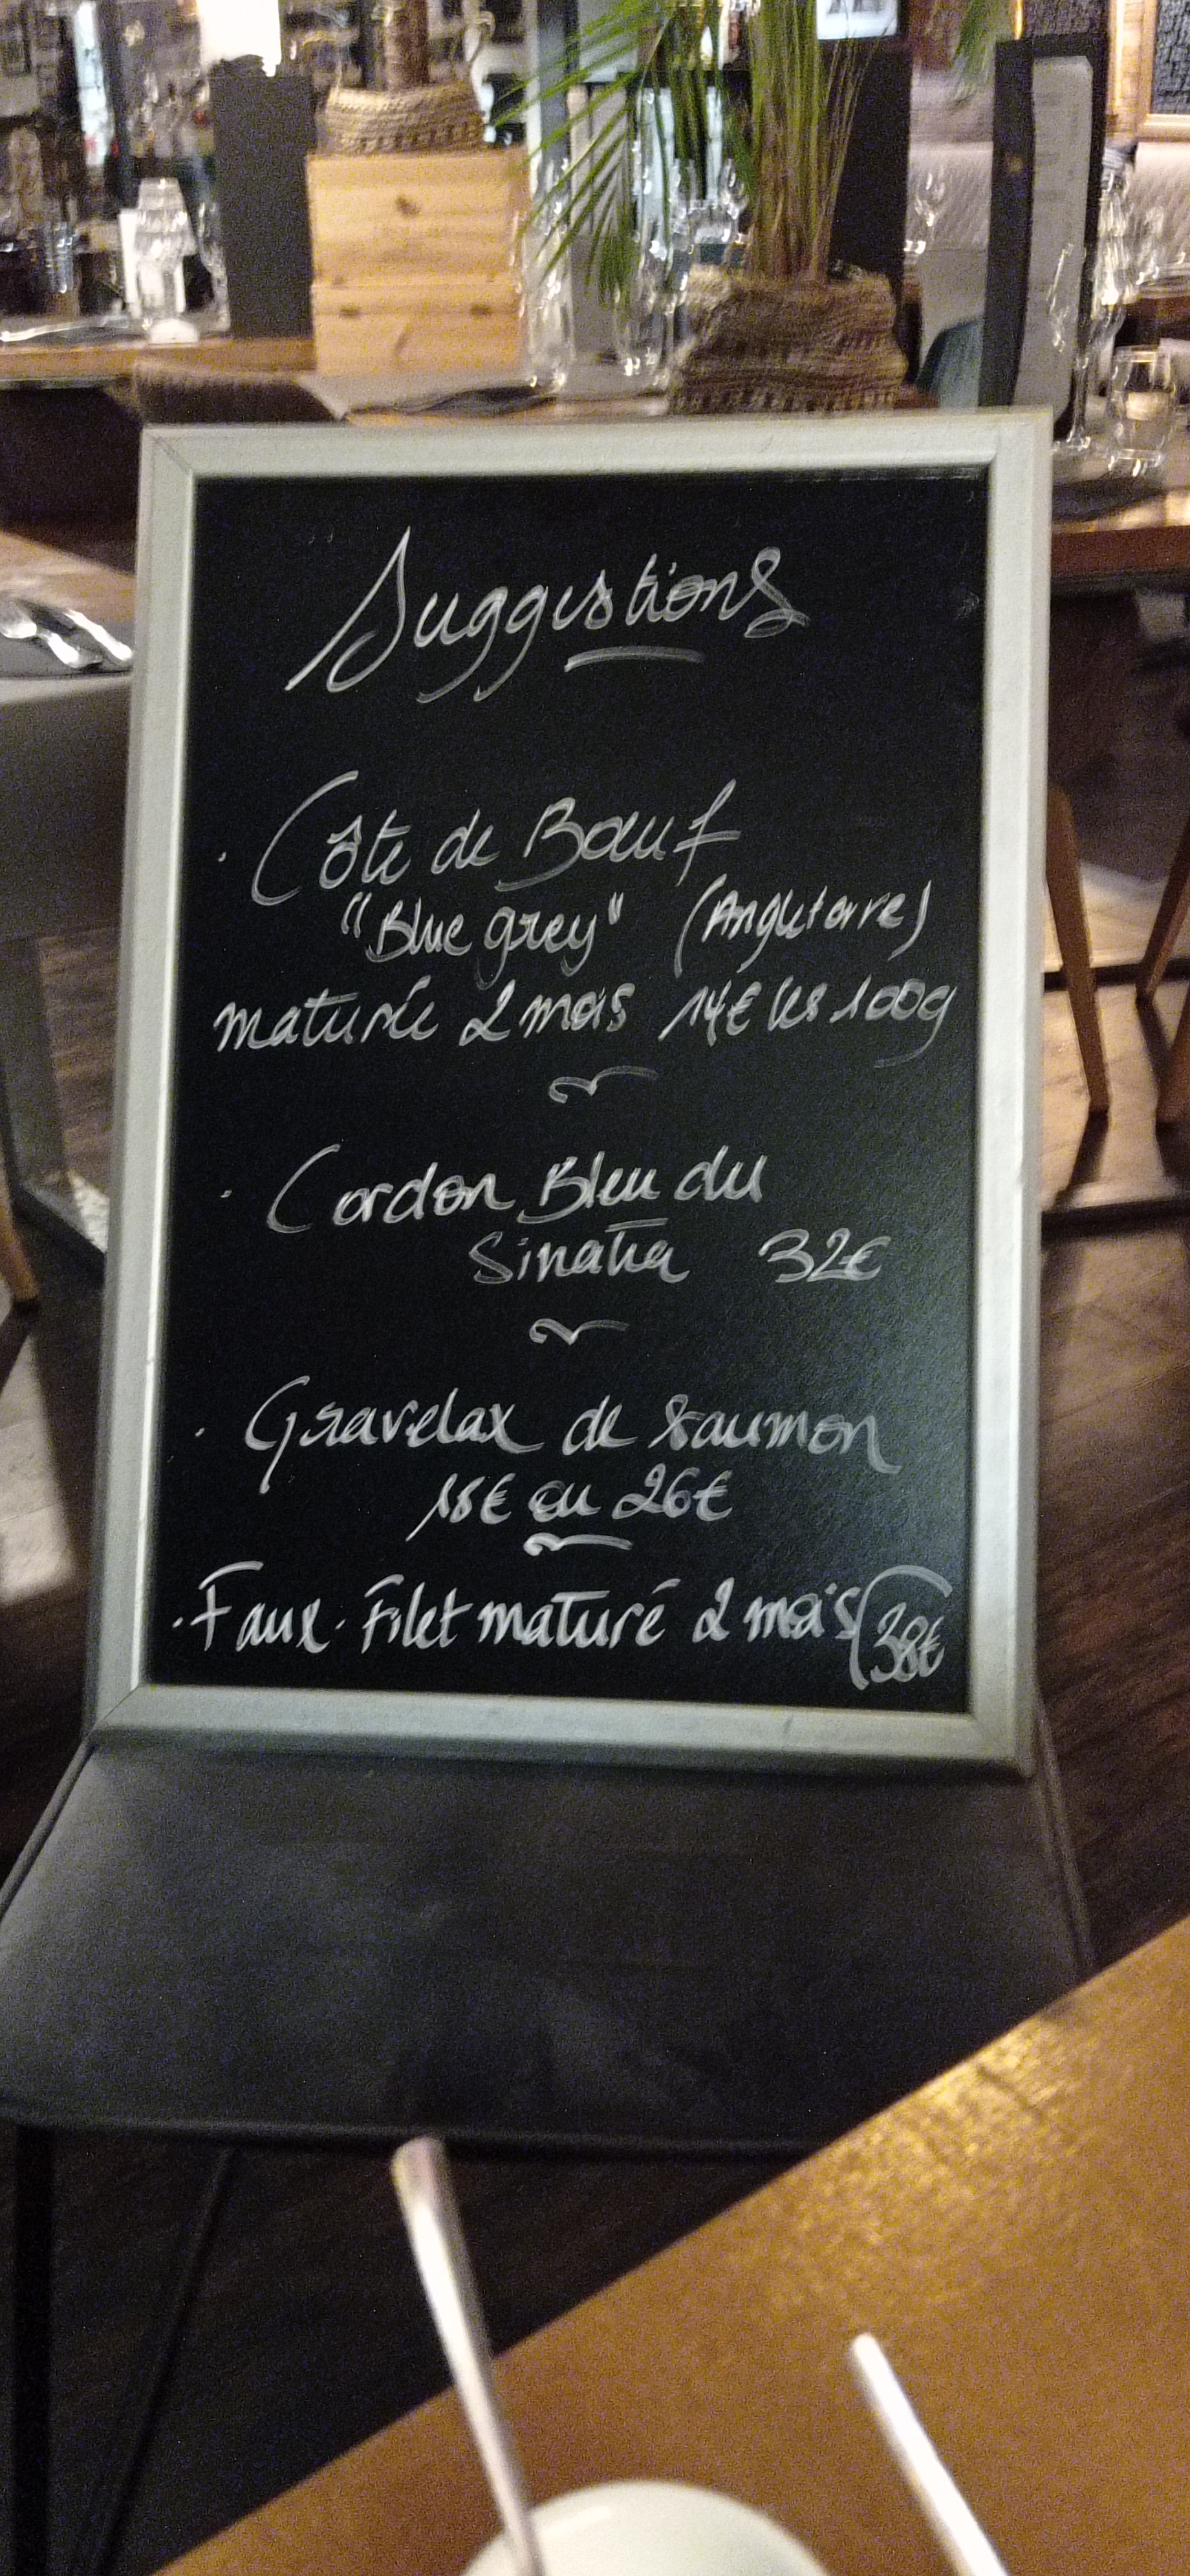 Suggestions
. Côte de Bœuf
"Blue grey" (Angleterre)
maturée 2 mois 14€ les 100g
. Cordon Bleu du
Sinatra 32€
. Gravelax de saumon
18€ ou 26€
. Faux-Filet maturé 2 mois 38€